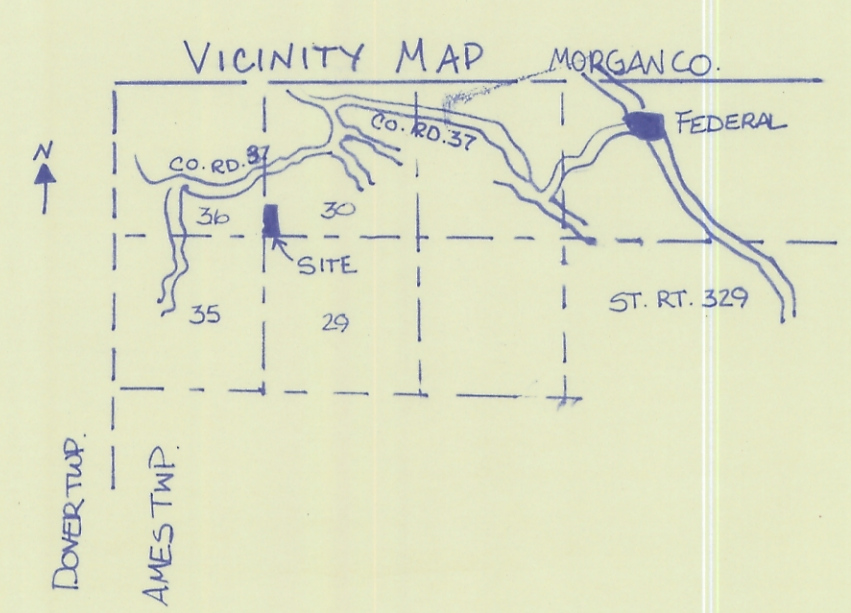 VICINITY MAP
MORGAN CO.
FEDERAL
CO. RD. 37
N
CO. RD. 37
36
30
SITE
35
29
ST. RT. 329
DOVER TWP.
AMES TWP.